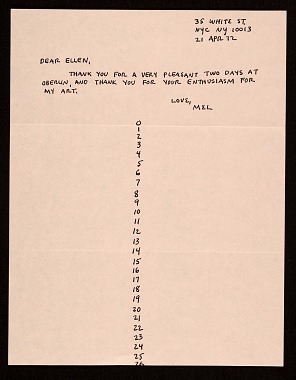 35 WHITE ST.
NYC NY 10013
21 APR 72
DEAR ELLEN,
THANK YOU FOR A VERY PLEASANT TWO DAYS AT
OBERLIN, AND THANK YOU FOR YOUR ENTHUSIASM FOR
MY ART.
LOVE,
MEL
0
1
2
3
4
5
6
7
8
9
10
11
12
13
14
15
16
17
18
19
20
21
22
23
24
25
26